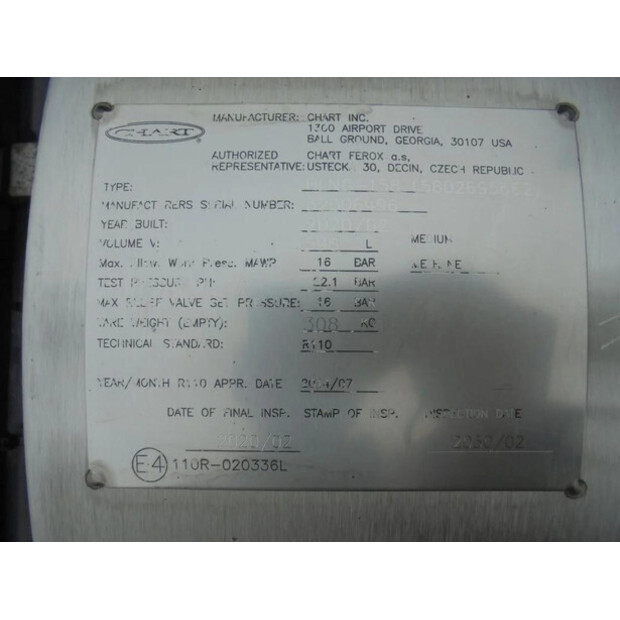 CHART
MANUFACTURER: CHART INC.
1300 AIRPORT DRIVE
BALL GROUND, GEORGIA, 30107 USA
AUTHORIZED CHART FEROX a.s,
REPRESENTATIVE: USTECKA 30, DECIN, CZECH REPUBLIC
TYPE:
MANUFACTURERS SERIAL NUMBER:
YEAR BUILT:
VOLUME V: L MEDIUM
Max. Allow. Work Press. MAWP 16 BAR METHANE
TEST PRESSURE PH: 22.1 BAR
MAX RELIEF VALVE SET PRESSURE: 16 BAR
TARE WEIGHT (EMPTY): 308 KG
TECHNICAL STANDARD: R110
YEAR/MONTH R110 APPR. DATE 2014/07
DATE OF FINAL INSP. STAMP OF INSP. INSPECTION DATE
2020/02 2030/02
E4 110R-020336L